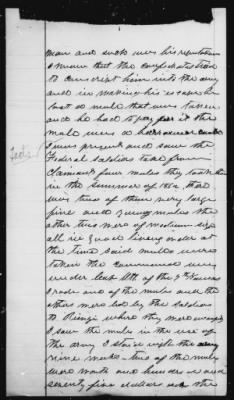 man and such was his reputation
I know that the confederates tried
to conscript him into the army
and in making his escape he
lost a mule that was taken
and he had to pay for it the
mule was a borrowed
I was present and saw the
Federal soldiers take from
Claimant four mules they took them
in the summer of 1862 there
was two of them very large
fine and young mules the
other two were of medium size
all in good living order at
the time said mules were
taken the command was
under Col of the 7 Kansas
I rode one of the mules and the
others were led by the soldiers
to Rienzi where they were
I saw the mules in the use of
the army I staid with the army
nine weeks two of the mules
were worth one hundred and
seventy five dollars and the